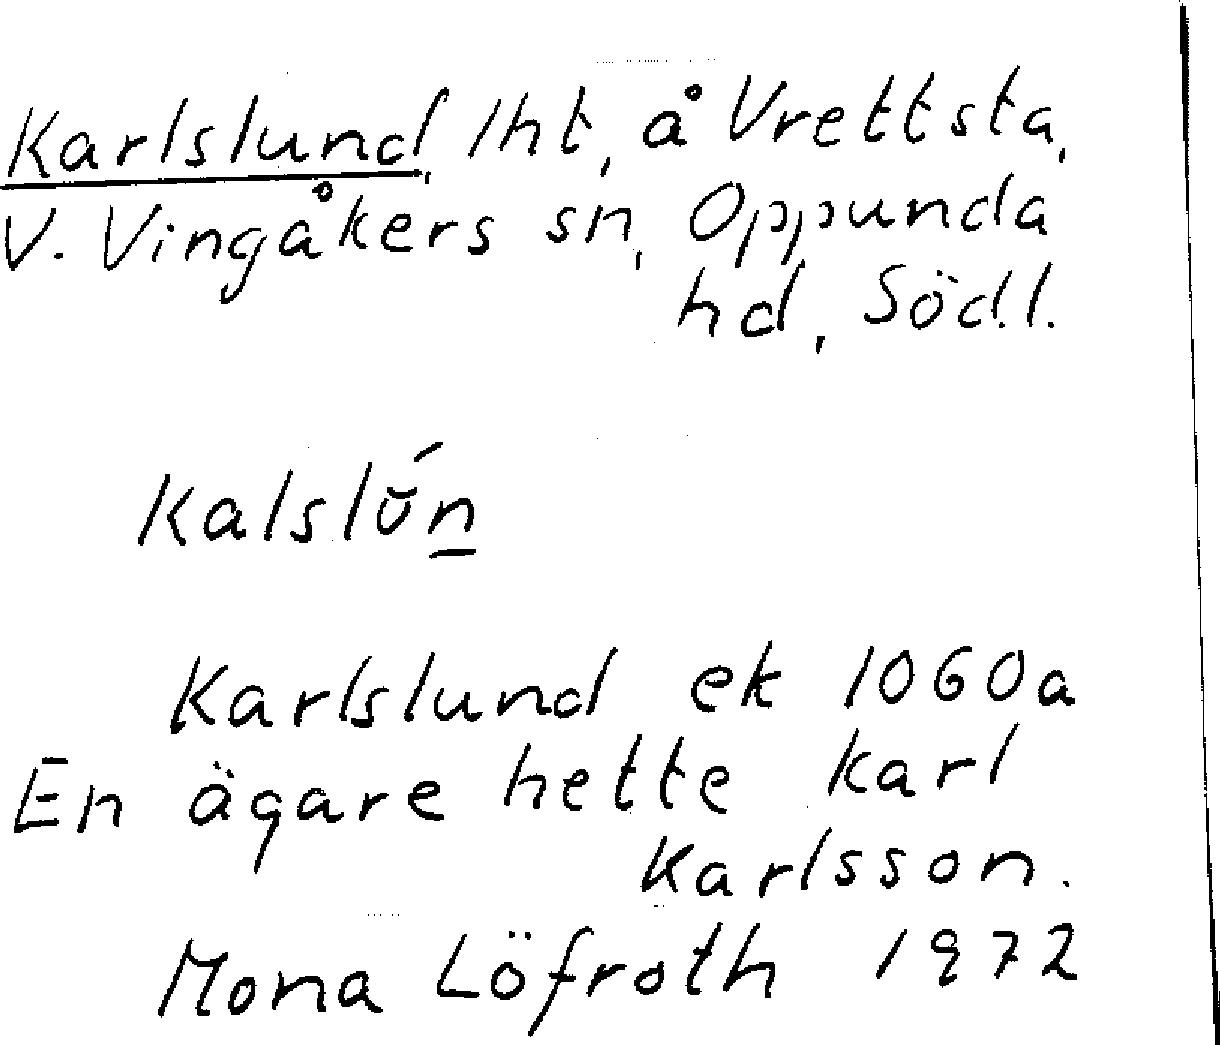 Karlslund, lht, å Vrettsta,
V. Vingåkers sn, Oppunda
hd, Söd.l.
Kalslŭ́n̲
Karlslund ek 1060a
En ägare hette Karl
Karlsson.
Mona Löfroth 1972